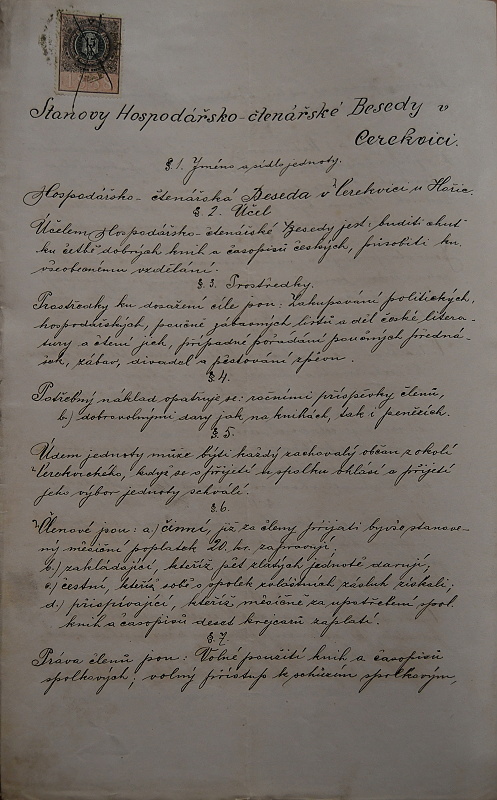 15
Stanovy Hospodářsko-čtenářské Besedy v
Cerekvici.
§. 1. Jméno a sídlo jednoty.
Hospodářsko-čtenářská Beseda v Cerekvici u Hořic.
§ 2. Účel
Účelem Hospodářsko-čtenářské Besedy jest: buditi chuť
ku četbě dobrých knih a časopisů českých, působiti ku
všeobecnému vzdělání.
§. 3. Prostředky.
Prostředky ku dosažení cíle jsou: Zakupování politických,
hospodářských, poučně zábavných listů a děl české litera-
tury a čtení jich, případné pořádání poučných předná-
šek, zábav, divadel a pěstování zpěvu.
§. 4.
Potřebný náklad opatřuje se: ročními příspěvky členů,
b.) dobrovolnými dary jak na knihách, tak i penězích.
§. 5.
Údem jednoty může býti každý zachovalý občan z okolí
Cerekvického, když se o přijetí u spolku ohlásí a přijetí
jeho výbor jednoty schválí.
§. 6.
Členové jsou: a.) činní, již za členy přijati byvše, stanove-
ný měsíční poplatek 20. kr. zapravují;
b.) zakládající, kteříž pět zlatých jednotě darují;
c.) čestní, kteříž sobě o spolek zvláštních zásluh získali;
d.) přispívající, kteříž měsíčně za upotřebení spol.
knih a časopisů deset krejcarů zaplatí.
§. 7.
Práva členů jsou: Volné použití knih a časopisů
spolkových; volný přístup k schůzím spolkovým,